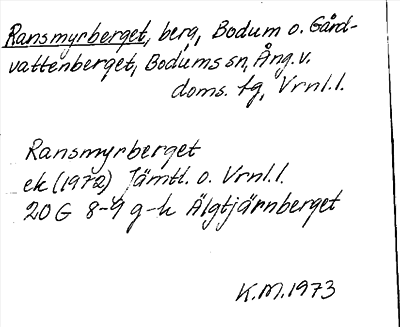 Ransmyrberget, berg, Bodum o. Gård-
vattenberget, Bodums sn, Ång. v.
doms. tg, Vrnl. l.
Ransmyrberget
ek (1972) Jämtl. o. Vrnl. l.
20 G 8-9 g-h Älgtjärnberget
K.M. 1973